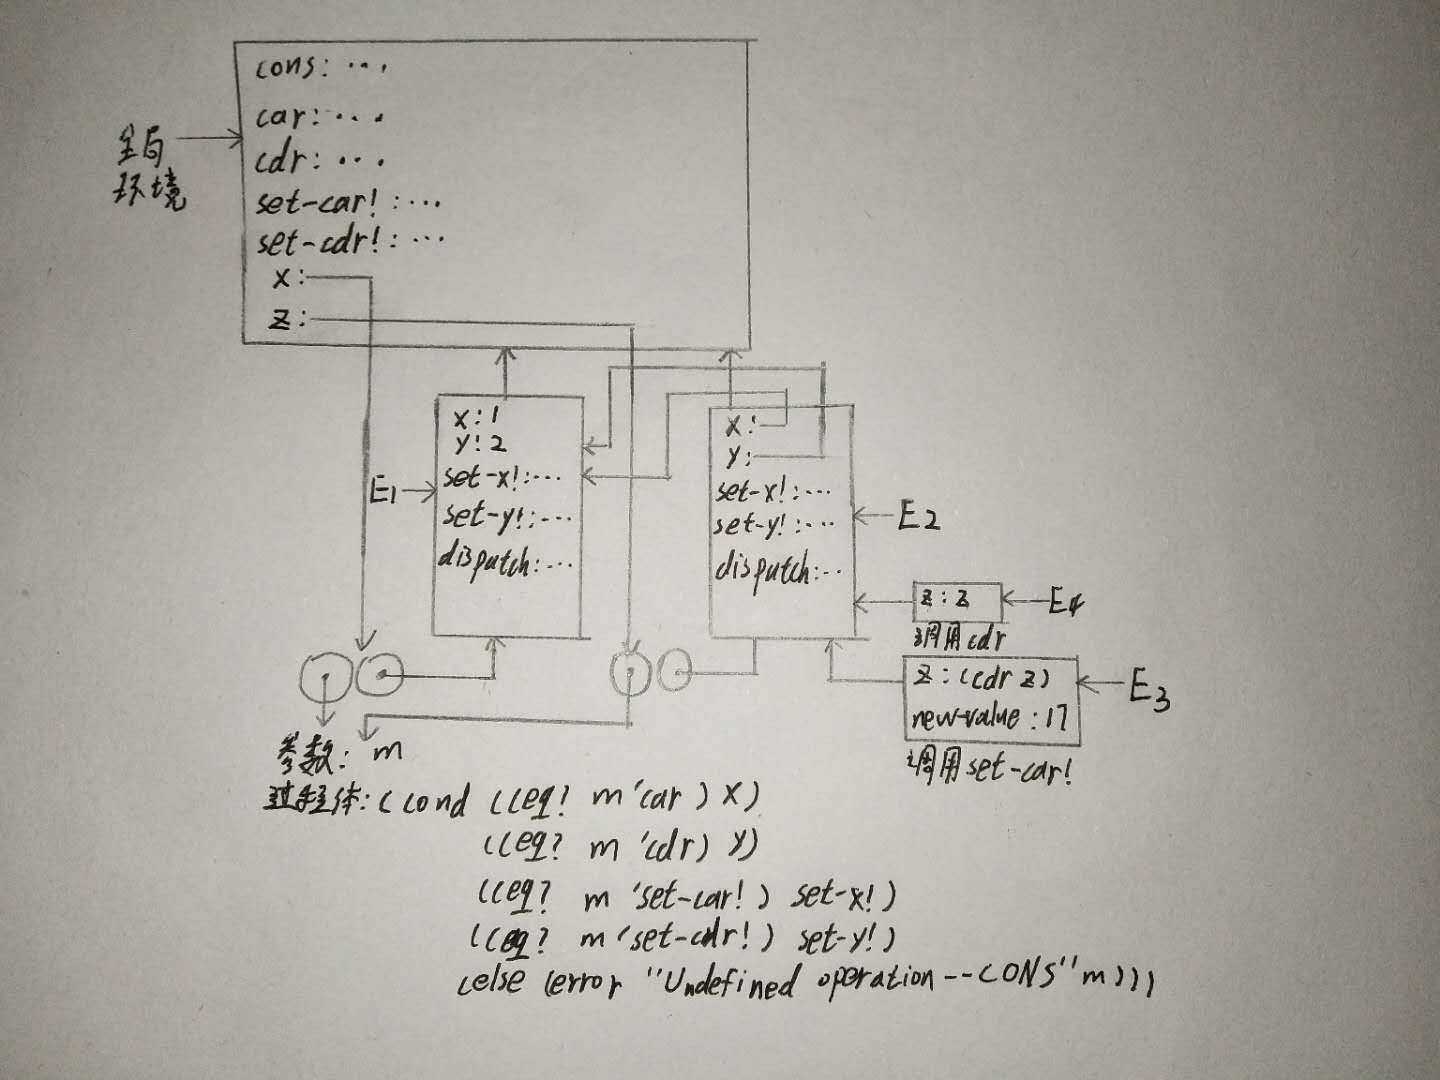 cons: ...
car: ...
cdr: ...
set-car! : ...
set-cdr! : ...
x:
z:
全局
环境
x: 1
y: 2
set-x!: ...
set-y!: ...
dispatch: ...
E1
x:
y:
set-x!: ...
set-y!: ...
dispatch: ...
E2
z: z
E4
调用cdr
z: (cdr z)
new-value: 17
E3
调用set-car!
参数: m
过程体: (cond ((eq? m 'car) x)
((eq? m 'cdr) y)
((eq? m 'set-car!) set-x!)
((eq? m 'set-cdr!) set-y!)
(else (error "Undefined operation--CONS" m)))